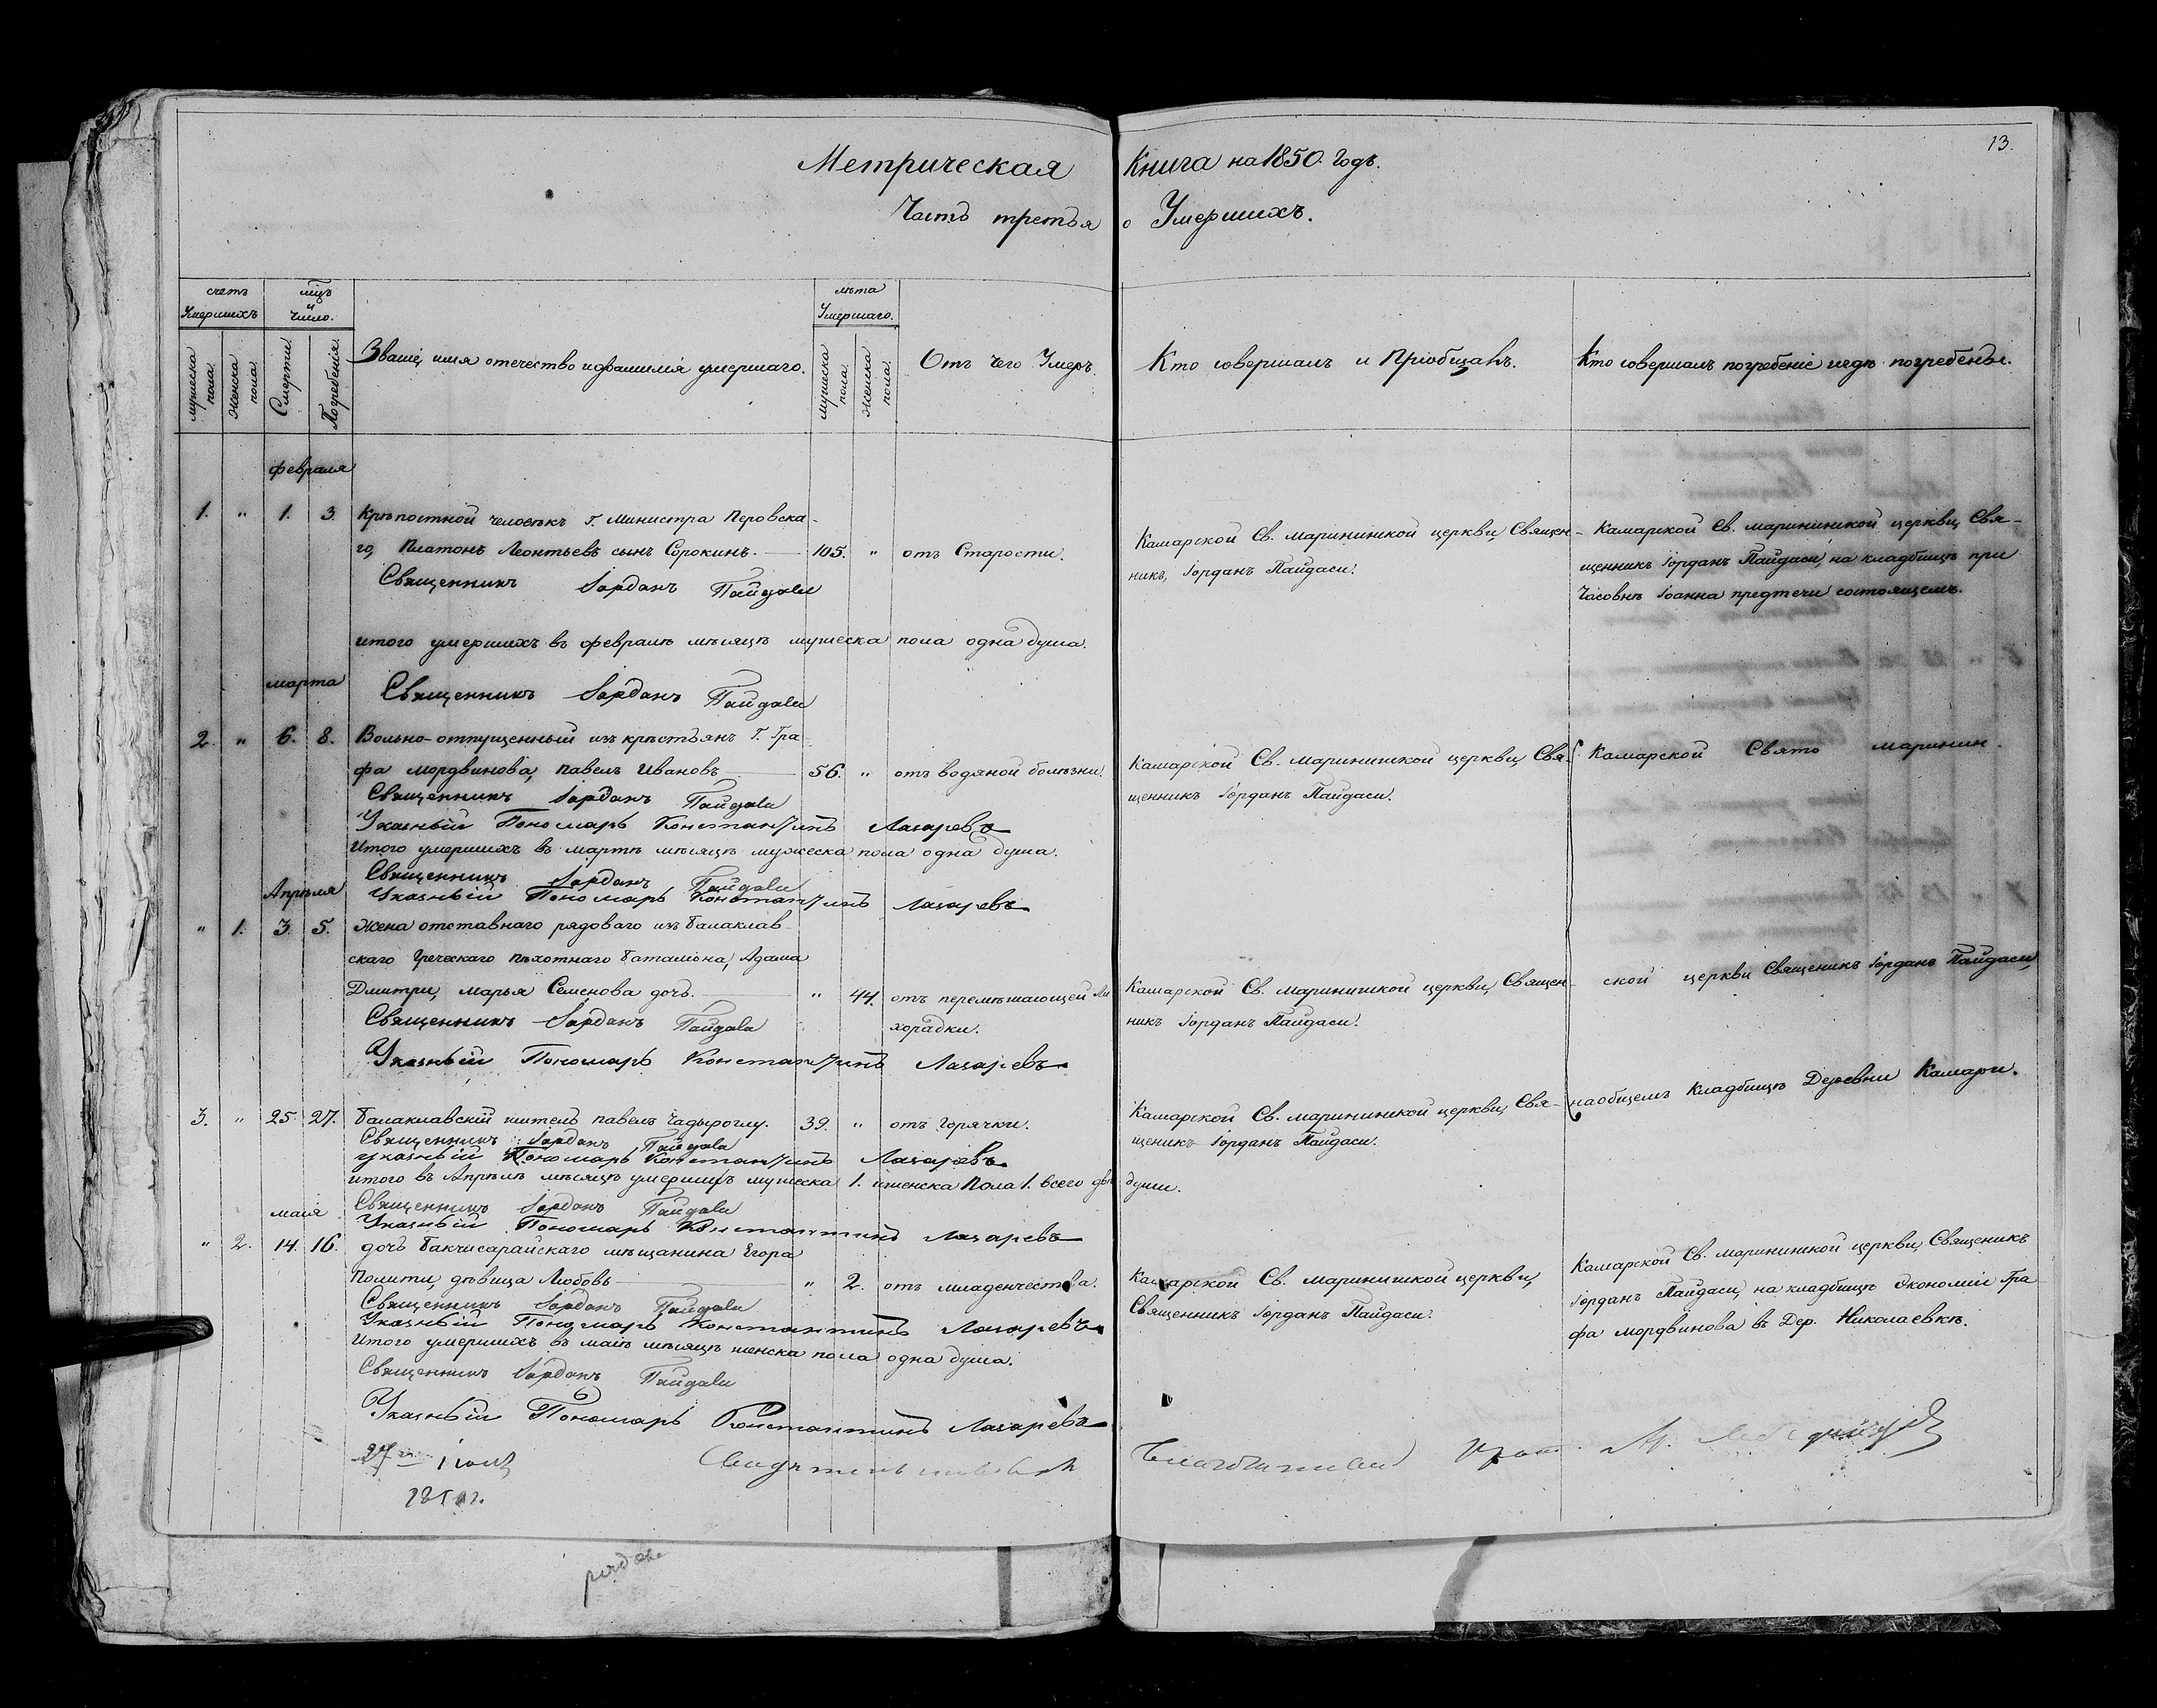 13.
Метрическая Книга на 1850. Годъ.
Часть третья о Умершихъ.
счетъ Умершихъ
мцъ и Число.
Званіе, имя отечество и фамилія умершаго.
лѣта Умершаго.
Отъ чего Умеръ.
Кто совершалъ и Пріобщалъ.
Кто совершалъ погребеніе и гдѣ погребены.
мужеска пола.
Женска пола.
Смерти.
Погребенія.
мужеска пола.
женска пола.
февраля
1. " 1. 3. Крѣпостной человѣкъ Г. Министра Перовска-
го, Платонъ Леонтьевъ сынъ Сорокинъ. 105. " отъ Старости.
Камарской Св. Марининской церкви, Священ-
никъ, Іорданъ Пайдаси.
Камарской Св. марининской церкви, Свя-
щенникъ Іорданъ Пайдаси, на кладбищѣ при
Часовнѣ Іоанна предтечи состоящемъ.
Священникъ Іорданъ Пайдаси
итого умершихъ въ февралѣ мѣсяцѣ мужеска пола одна душа.
марта
Священникъ Іорданъ Пайдаси
2. " 6. 8. Вольно-отпущенный изъ крестьянъ Г. Гра
фа мордвинова, павелъ Ивановъ 56. " отъ водяной болѣзни.
Камарской Св. Марининской церкви, Свя-
щенникъ Іорданъ Пайдаси.
Камарской Свято маринин.
Священникъ Іорданъ Пайдаси
Указный Пономарь Константинъ Лазаревъ
Итого умершихъ въ мартѣ мѣсяцѣ мужеска пола одна душа.
Священникъ Іорданъ Пайдаси
Апрѣля
Указный Пономарь Константинъ Лазаревъ
" 1. 3. 5. Жена отставнаго рядоваго изъ балаклав-
скаго Греческаго пѣхотнаго баталіона, Адама
Дмитри, марья Семенова дочь. " 44. отъ перемѣжающей ли
хорадки.
Камарской Св. Марининской церкви, Священ-
никъ Іорданъ Пайдаси.
ской церкви Священикъ Іорданъ Пайдаси,
Священникъ Іорданъ Пайдаси
Указный Пономарь Константинъ Лазаревъ
3. " 25. 27. балаклавскій житель павелъ Чадыроглу. 39. " отъ горячки.
Камарской Св. Марининской церкви, Свя-
щеникъ Іорданъ Пайдаси.
на общемъ Кладбищѣ Деревни Камары.
Священникъ Іорданъ Пайдаси
указный Пономарь Константинъ Лазаревъ
итого въ Апрѣлѣ мѣсяцѣ умершихъ мужеска 1. и женска Пола 1. всего двѣ души.
Священникъ Іорданъ Пайдаси
маія
Указный Пономарь Константинъ Лазаревъ
" 2. 14. 16. дочь бакчисарайскаго мѣщанина Егора
Полити, дѣвица Любовь " 2. отъ младенчества.
Камарской Св. марининской церкви,
Священникъ Іорданъ Пайдаси.
Камарской Св. марининской церкви, Священикъ
Іорданъ Пайдаси, на кладбищѣ Экономіи Гра-
фа мордвинова въ Дер. Николаевкѣ.
Священникъ Іорданъ Пайдаси
Указный Пономарь Константинъ Лазаревъ
Итого умершихъ въ маіѣ мѣсяцѣ женска пола одна душа.
Священникъ Іорданъ Пайдаси
Указный Пономарь Константинъ Лазаревъ
27 іюля
Свидѣтельствовалъ Благочинный